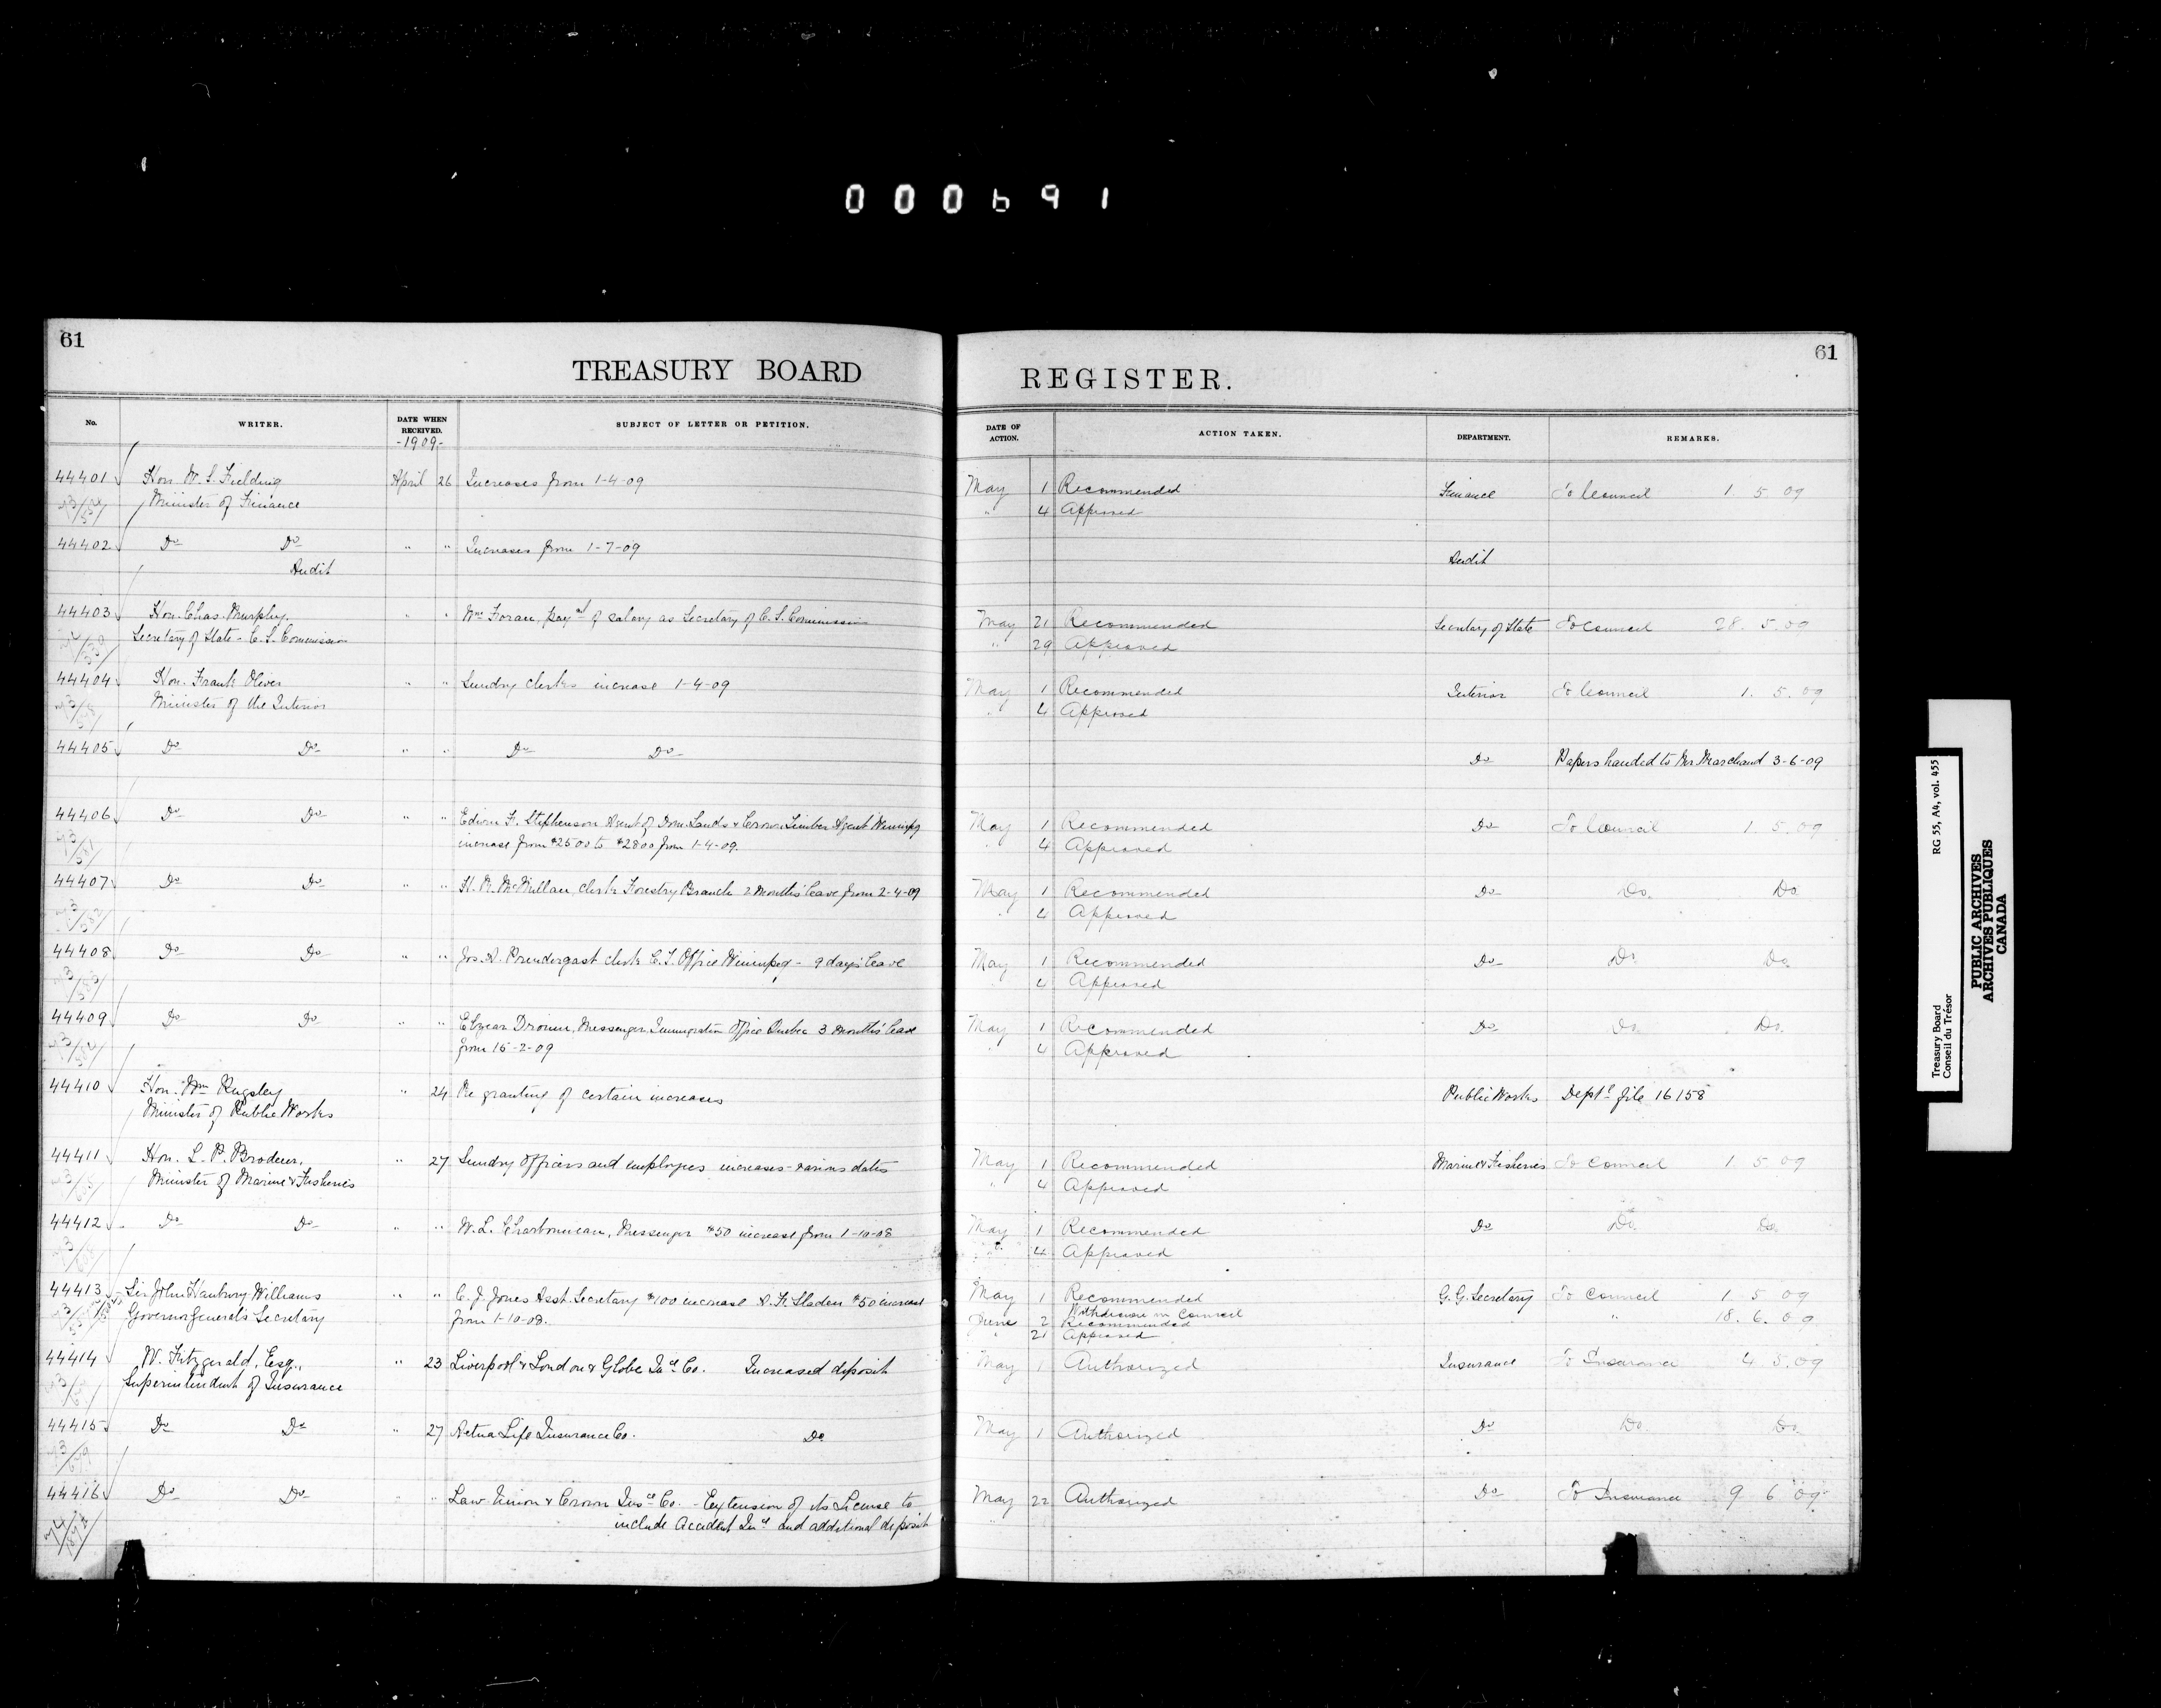 000691
61
TREASURY BOARD
No.
WRITER.
DATE WHEN
RECEIVED.
-1909-
SUBJECT OF LETTER OR PETITION.
44401 Hon. W. S. Fielding April 26 Increases from 1-4-09
Minister of Finance
44402 Do Do " " Increases from 1-7-09
Audit
44403 Hon. Chas. Murphy. " " Wm Foran, paymt of salary as Secretary of C. S. Commission
Secretary of State - C. S. Commission
44404 Hon. Frank Oliver " " Sundry clerks increase 1-4-09
Minister of the Interior
44405 Do Do " " Do Do
44406 Do Do " " F. Stephenson Agent of Dom. Lands & Crown Timber Agent Winnipeg
increase from $2500 to $2800 from 1-4-09.
44407 Do Do " " H. R. McMillan, clerk Forestry Branch 2 months' leave from 2-4-09
44408 Do Do " " Jos. A. Prendergast clerk C. T. Office Winnipeg - 9 days' leave
44409 Do Do " " Elzear Drouin, Messenger, Immigration Office Quebec 3 months' leave
from 15-2-09
44410 Hon. Wm Pugsley " 24 Re granting of certain increases
Minister of Public Works
44411 Hon. L. P. Brodeur, " 27 Sundry officers and employees increases - various dates
Minister of Marine & Fisheries
44412 Do Do " " W. L. Charbonneau, Messenger $50 increase from 1-10-08
44413 Sir John Hanbury Williams " " C. J. Jones Asst. Secretary $100 increase A. F. Sladen $50 increase
Governor General's Secretary from 1-10-08.
44414 W. Fitzgerald, Esq., " 23 Liverpool & London & Globe Ince Co. Increased deposit
Superintendent of Insurance
44415 Do Do " 27 Aetna Life Insurance Co. Do
44416 Do Do " " Law Union & Crown Insce Co. - Extension of its License to
include Accident Ince and additional deposit
61
REGISTER.
DATE OF
ACTION.
ACTION TAKEN.
DEPARTMENT.
REMARKS.
May 1 Recommended Finance To Council 1. 5. 09
" 4 Approved
Audit
May 21 Recommended Secretary of State To Council 28. 5. 09
" 29 Approved
May 1 Recommended Interior To Council 1. 5. 09
" 4 Approved
Do Papers handed to Mr Marchand 3-6-09
May 1 Recommended Do To Council 1. 5. 09
" 4 Approved
May 1 Recommended Do Do. Do.
" 4 Approved
May 1 Recommended Do Do. Do.
" 4 Approved
May 1 Recommended Do Do. Do.
" 4 Approved
Public Works Deptl file 16158
May 1 Recommended Marine & Fisheries To Council 1 5 09
" 4 Approved
May 1 Recommended Do Do. Do.
" 4 Approved
May 1 Recommended G. G. Secretary To Council 1 5 09
Withdrawn in Council
June 2 Recommended " 18. 6. 09
" 21 Approved
May 1 Authorized Insurance To Insurance 4 5. 09
May 1 Authorized Do Do. Do.
May 22 Authorized Do To Insurance 9 6 09
Treasury Board RG 55, A4, vol. 455
Conseil du Trésor
PUBLIC ARCHIVES
ARCHIVES PUBLIQUES
CANADA